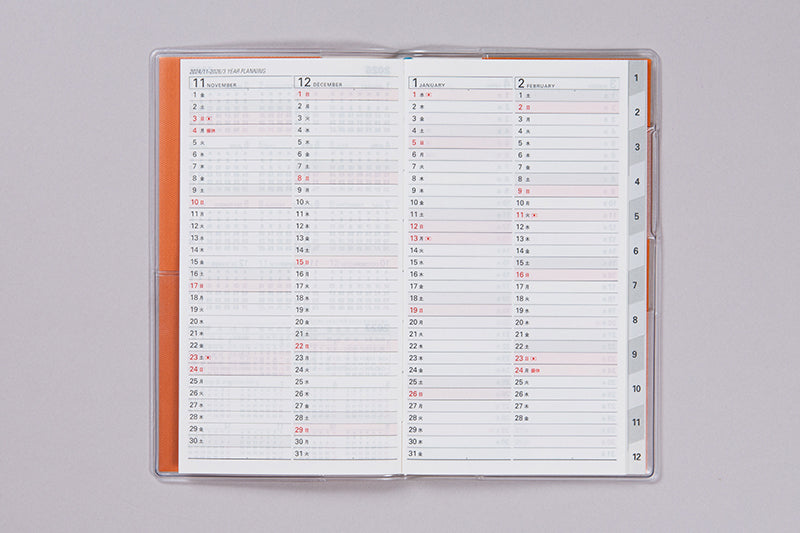 2024/11-2026/3 YEAR PLANNING
11 NOVEMBER
1 金
2 土
3 日
4 月 振休
5 火
6 水
7 木
8 金
9 土
10 日
11 月
12 火
13 水
14 木
15 金
16 土
17 日
18 月
19 火
20 水
21 木
22 金
23 土
24 日
25 月
26 火
27 水
28 木
29 金
30 土
12 DECEMBER
1 日
2 月
3 火
4 水
5 木
6 金
7 土
8 日
9 月
10 火
11 水
12 木
13 金
14 土
15 日
16 月
17 火
18 水
19 木
20 金
21 土
22 日
23 月
24 火
25 水
26 木
27 金
28 土
29 日
30 月
31 火
1 JANUARY
1 水
2 木
3 金
4 土
5 日
6 月
7 火
8 水
9 木
10 金
11 土
12 日
13 月
14 火
15 水
16 木
17 金
18 土
19 日
20 月
21 火
22 水
23 木
24 金
25 土
26 日
27 月
28 火
29 水
30 木
31 金
2 FEBRUARY
1 土
2 日
3 月
4 火
5 水
6 木
7 金
8 土
9 日
10 月
11 火
12 水
13 木
14 金
15 土
16 日
17 月
18 火
19 水
20 木
21 金
22 土
23 日
24 月 振休
25 火
26 水
27 木
28 金
1
2
3
4
5
6
7
8
9
10
11
12